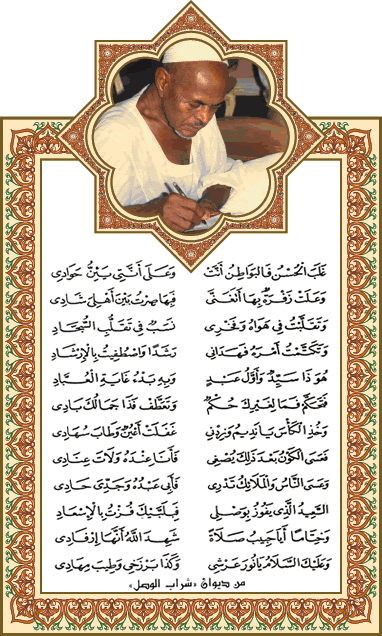 غَلَبَ الحُسْنُ فَالبَوَاطِنُ أَنَّتْ وَعَلَى أَنَّتِي حَوَادِي
وَعَلَتْ زَفْرَةٌ بِهَا أَتَغَنَّى فَبِهَا صِرْتُ بَيْنَ أَهْلِيَ شَادِي
وَتَقَلَّبْتُ فِي هَوَاهُ وَفَخْرِي نَسَبٌ فِي تَقَلُّبِ السُّجَّادِ
وَتَكَتَّمْتُ أَمْرَهُ فَهَدَانِي رَشَدًا وَاصْطُفِيتُ بِالإِرْشَادِ
هُوَ ذَا سَيِّدٌ وَأَوَّلُ عَبْدٍ وَبِهِ بَدْءُ غَايَةِ العُبَّادِ
فَتَحَكَّمْ فَمَا لِغَيْرِكَ حُكْمٌ وَتَعَطَّفْ فَذَا جَمَالُكَ بَادِي
وَخُذِ الكَأْسَ يَا نَدِيمُ وَزِدْنِي غَفَلَتْ أَعْيُنٌ وَطَابَ سُهَادِي
فَعَسَى الكَوْنُ بَعْدَ ذَلِكَ يُصْغِي فَأَنَا عِنْدَهُ وَلَاتَ عِنَادِي
وَعَسَى النَّاسُ وَالمَلَائِكُ تَدْرِي فَأَبِي عَبْدُهُ وَجَدِّيَ حَادِي
السَّعِيدُ الَّذِي يَفُوزُ بِوَصْلِي فُزْتُ بِالإِسْعَادِ
وَخِتَامًا أَيَا حَبِيبُ صَلَاةً شَهِدَ اللهُ أَنَّهَا إِرْفَادِي
وَعَلَيْكَ السَّلَامُ يَا نُورَ عَرْشِي وَكَذَا بَرْزَخِي وَطِيبَ مِهَادِي
من ديوان «شراب الوصل»